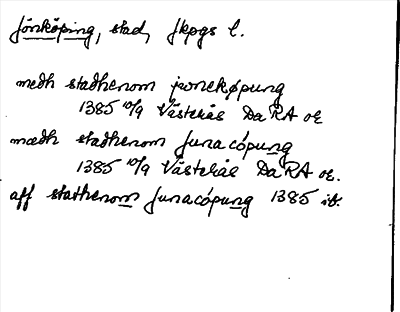 Jönköping, stad, Jkpgs l.
medh stadhenom junekøpung
1385 10/9 Västerås DaRA or
mædh stadhenom Junacópung
1385 10/9 Västerås DaRA or.
aff stathenom Junacópung 1385 ib.